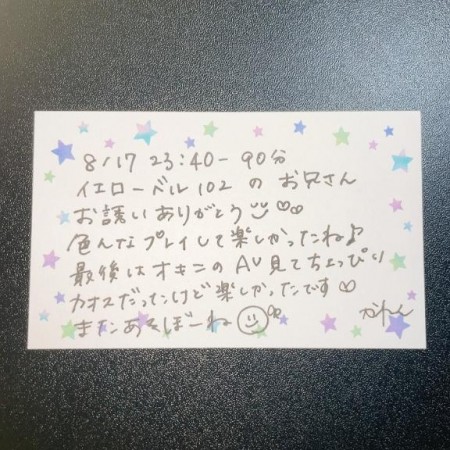 8/17 23:40-90分
イエローベル102のお兄さん
お誘いありがとう
色んなプレイして楽しかったね♪
最後はオキニのAV見てちょっぴり
カオスだったけど楽しかったです♡
またあそぼーね
かれん